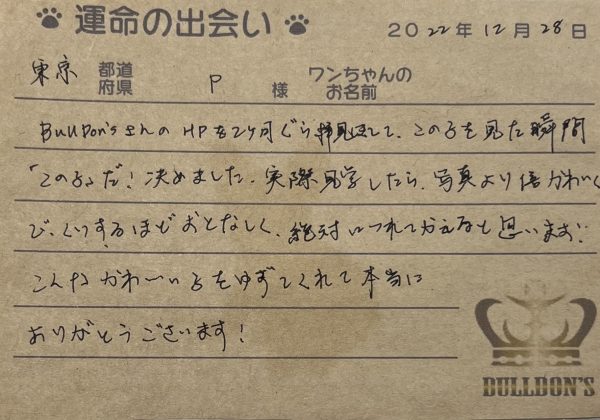 運命の出会い
2022年12月28日
東京 都道府県 P 様 ワンちゃんのお名前
BullDon'sさんのHPを2ヶ月ぐらい拝見して、この子を見た瞬間
「この子だ!決めました。実際見学したら、写真より倍かわいく
びっくりするほどおとなしく、絶対につれてかえると思います!
こんなかわいい子をゆずってくれて本当に
ありがとうございます!
BULLDON'S